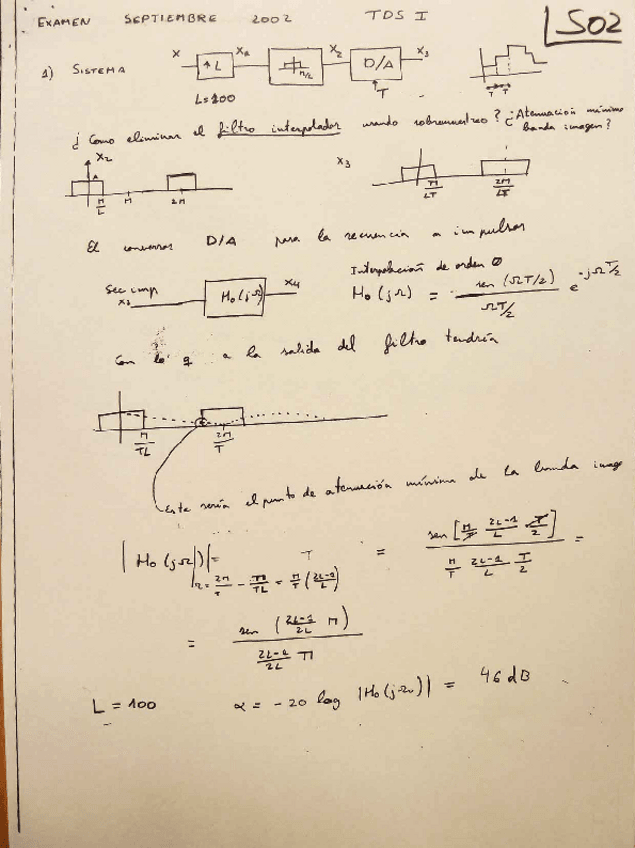 EXAMEN SEPTIEMBRE 2002 TDS I
S02
1) SISTEMA X ↑L X1 π/2 X2 D/A X3
L=100 T T T
¿Como eliminar el filtro interpolador usando sobremuestreo? ¿Atenuación mínima
banda imagen?
X2 X3
π/L π 2π π/LT 2π/LT
El conversor D/A pasa la secuencia a impulsos
Interpolación de orden 0
Sec imp X3 Ho(jΩ) X4 Ho(jΩ) = sen(ΩT/2) / ΩT/2 e^-jΩT/2
Con lo q a la salida del filtro tendría
π/TL 2π/T
Este sería el punto de atenuación mínima de la banda imagen
|Ho(jΩ)| Ω = 2π/T - π/TL = π/T (2L-1/L) = T = sen[π/T 2L-1/L T/2] / π/T 2L-1/L T/2 =
= sen(2L-1/2L π) / 2L-1/2L π
L = 100 α = -20 log |Ho(jΩ)| = 46 dB